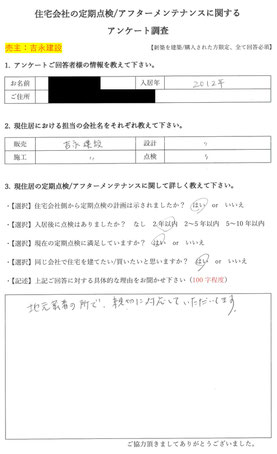 住宅会社の定期点検/アフターメンテナンスに関する
アンケート調査
売主：吉永建設
【新築を建築/購入された方限定、全て回答必須】
1. アンケートご回答者様の情報を教えて下さい。
お名前 入居年 2012年
ご住所
2. 現住居における担当の会社名をそれぞれ教えて下さい。
販売 吉永建設 設計 〃
施工 〃 点検 〃
3. 現住居の定期点検/アフターメンテナンスに関して詳しく教えて下さい。
・【選択】住宅会社側から定期点検の計画は示されましたか？ はい or いいえ
・【選択】入居後に点検はありましたか？ なし 2年以内 2～5年以内 5～10年以内
・【選択】現在の定期点検に満足していますか？ はい or いいえ
・【選択】同じ会社で住宅を建てたい/買いたいと思いますか？ はい or いいえ
・【記述】上記ご回答に対する具体的な理由をお聞かせ下さい（100字程度）
地元業者の所で、親切に対応していただいてます。
ご協力頂きましてありがとうございました。